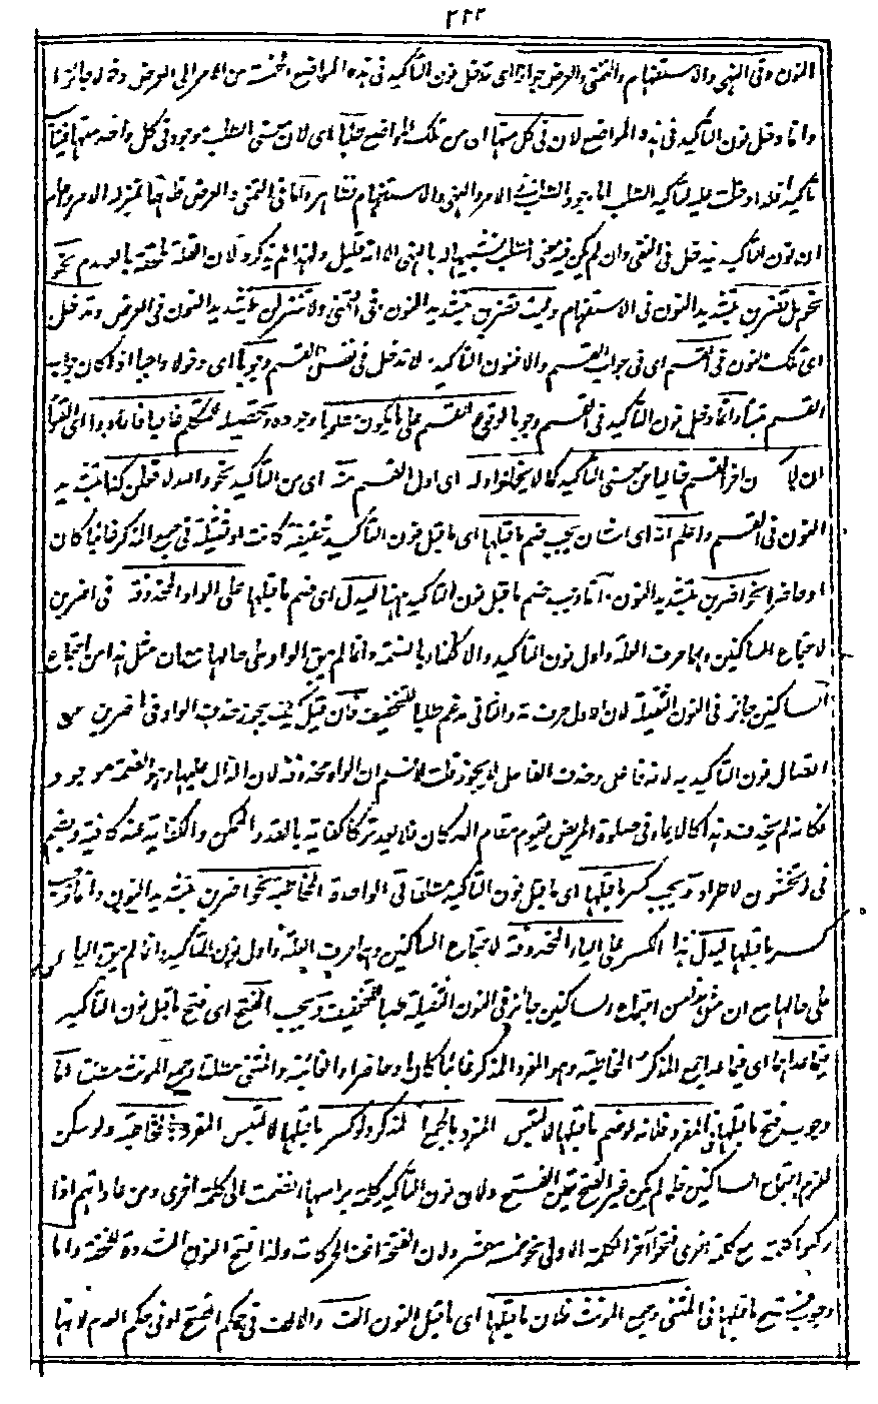 ٢٢٢
النون وفى النهى والاستفهام والتمنى والعرض جوازا اى تدخل نون التأكيد فى هذه المواضع الخمسة من الامر الى العرض دخولا جائزا
وانما دخل نون التأكيد فى هذه المواضع لان فى كل منها اى من تلك المواضع طلبا اى لان معنى الطلب موجود فى كل واحد منها
تأكيدا لتأكيد الطلب الامر والنهى والاستفهام واما فى التمنى والعرض بمنزلة الامر
ان نون التأكيد تدخل فى النفى وان لم يكن فيه معنى الطلب بالنهى الا انه قليل ولهذا لم يذكره لان القلة ملحقة بالعدم نحو
نحو هل تضربن بتشديد النون فى الاستفهام وليت تضربن بتشديد النون فى التمنى والا تنزلن بتشديد النون فى العرض وتدخل
اى تلك النون فى القسم اى فى جواب القسم والا فنون التأكيد لا تدخل فى نفس القسم وجوبا اى دخولا واجبا اذا كان جواب
القسم مثبتا وانما دخل نون التأكيد فى القسم وجوبا لوقوع القسم على ما يكون مطلوبا وجوده وتحصيله للمتكلم
ان لا يكون اخر القسم خاليا من معنى التأكيد كما لا يخلو اوله اى اول القسم منه اى من التأكيد نحو والله لافعلن كذا بتشديد
النون فى القسم واعلم انه اى الشان يجب ضم ما قبلها اى ما قبل نون التأكيد خفيفة كانت او ثقيلة فى جمع المذكر غائبا كان
او حاضرا نحو اضربن بتشديد النون انما وجب ضم ما قبل نون التأكيد ههنا ليدل اى ضم ما قبلها على الواو المحذوفة فى اضربن
لاجتماع الساكنين وهما حرف العلة واول نون التأكيد والاكتفاء بالضمة وانما لم يبق الواو على حالها مع ان مثل هذا من اجتماع
الساكنين جائز فى النون الثقيلة لان الاول حرف مد والثانى مدغم طلبا للتخفيف فان قيل كيف يجوز حذف الواو فى اضربن مع
اتصال نون التأكيد به لانه فاعل وحذف الفاعل لا يجوز قلت لا نسلم ان الواو محذوفة لان الدال عليها وهو الضمة موجود
فكانه لم يحذف وهذا كالايماء فى صلوة المريض يقوم مقام الركان
فى لاتخشون لاطراد ويجب كسر ما قبلها اى ما قبل نون التأكيد مطلقا فى الواحدة المخاطبة نحو اضربن بتشديد النون وانما وجب
كسر ما قبلها ليدل هذا الكسر على الياء المحذوفة لاجتماع الساكنين وهما حرف العلة واول نون التأكيد وانما لم يبق الياء
على حالها مع ان مثل هذا من اجتماع الساكنين جائز فى النون الثقيلة طلبا للتخفيف ويجب الفتح اى فتح ما قبل نون التأكيد
فيما عداهما اى فيما عدا جمع المذكر والمخاطبة وهو المفرد المذكر غائبا كان او حاضرا والغائبة والمثنى مطلقا وجمع المؤنث مطلقا اما
وجوب فتح ما قبلها فى المفرد فلانه لو ضم ما قبلها لالتبس المفرد بالجمع المذكر ولو كسر ما قبلها لالتبس المفرد بالمخاطبة ولو سكن
للزم اجتماع الساكنين فلما لم يكن غير الفتح تعين الفتح ولان نون التأكيد كلمة برأسها انضمت الى كلمة اخرى ومن عاداتهم اذا
ركبوا كلمة مع كلمة اخرى فتحوا آخر الكلمة الاولى نحو خمسة عشر ولان الفتحة اخف الحركات ولذا فتح النون المشددة للخفة واما
وجوب فتح ما قبلها فى المثنى وجمع المؤنث فلان ما قبلها اى ما قبل النون الف والالف فى حكم الفتح او فى حكم العدم لانها